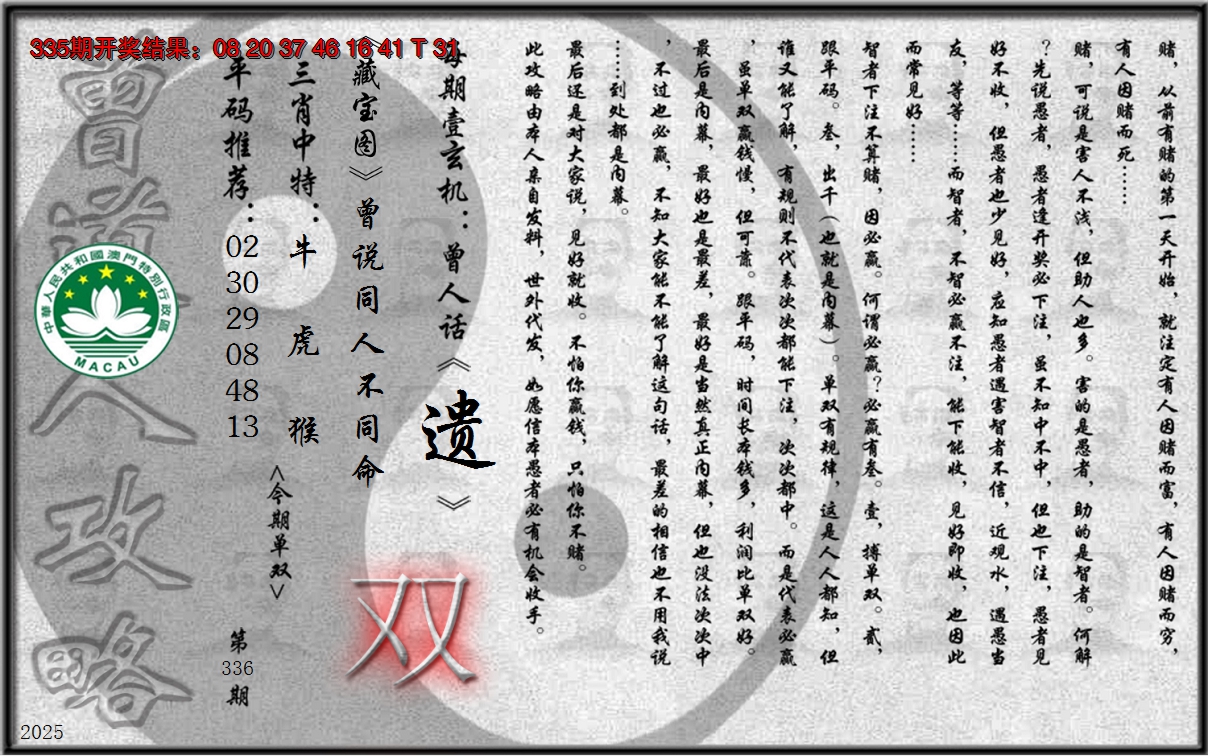 335期开奖结果：08 20 37 46 16 41 T 31
赌，从前有赌的第一天开始，就注定有人因赌而富，有人因赌而穷，
有人因赌而死……
赌，可说是害人不浅，但助人也多。害的是愚者，助的是智者。何解
？先说愚者，愚者逢开奖必下注，虽不知中不中，但也下注，愚者见
好不收，但愚者也少见好，应知愚者遇害智者不信，近观水，遇愚当
友，等等……而智者，不智必赢不注，能下能收，见好即收，也因此
而常见好……
智者下注不算赌，因必赢。何谓必赢？必赢有叁。壹，搏单双。贰，
跟平码。叁，出千（也就是内幕）。单双有规律，这是人人都知，但
谁又能了解，有规则不代表次次都能下注，次次都中。而是代表必赢
，虽单双赢钱慢，但可靠。跟平码，时间长本钱多，利润比单双好。
最后是内幕，最好也是最差，最好是当然真正内幕，但也没法次次中
，不过也必赢，不知大家能不能了解这句话，最差的相信也不用我说
……到处都是内幕。
最后还是对大家说，见好就收。不怕你赢钱，只怕你不赌。
此攻略由本人亲自发料，世外代发，如愿信本愚者必有机会收手。
每期壹玄机：曾人话《遗》
《藏宝图》曾说同人不同命
双
三肖中特：牛 虎 猴
<今期单双>
平码推荐：02 30 29 08 48 13
第336期
曾道人攻略
中華人民共和國澳門特別行政區
MACAU
2025